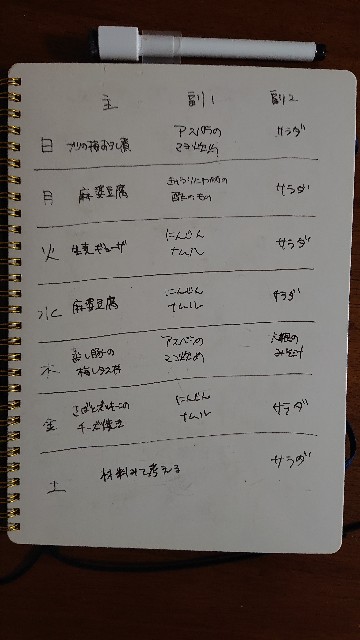 主 副1 副2
日 ブリの梅おろし煮 アスパラの サラダ
ごま炒め
月 麻婆豆腐 きゅうりとわかめの サラダ
酢のもの
火 生姜ギョーザ にんじん サラダ
ナムル
水 麻婆豆腐 にんじん サラダ
ナムル
木 蒸し豚の アスパラの 大根の
梅レタス ごま炒め みそ汁
金 さばと にんじん サラダ
チーズ焼き ナムル
土 材料みて考える サラダ